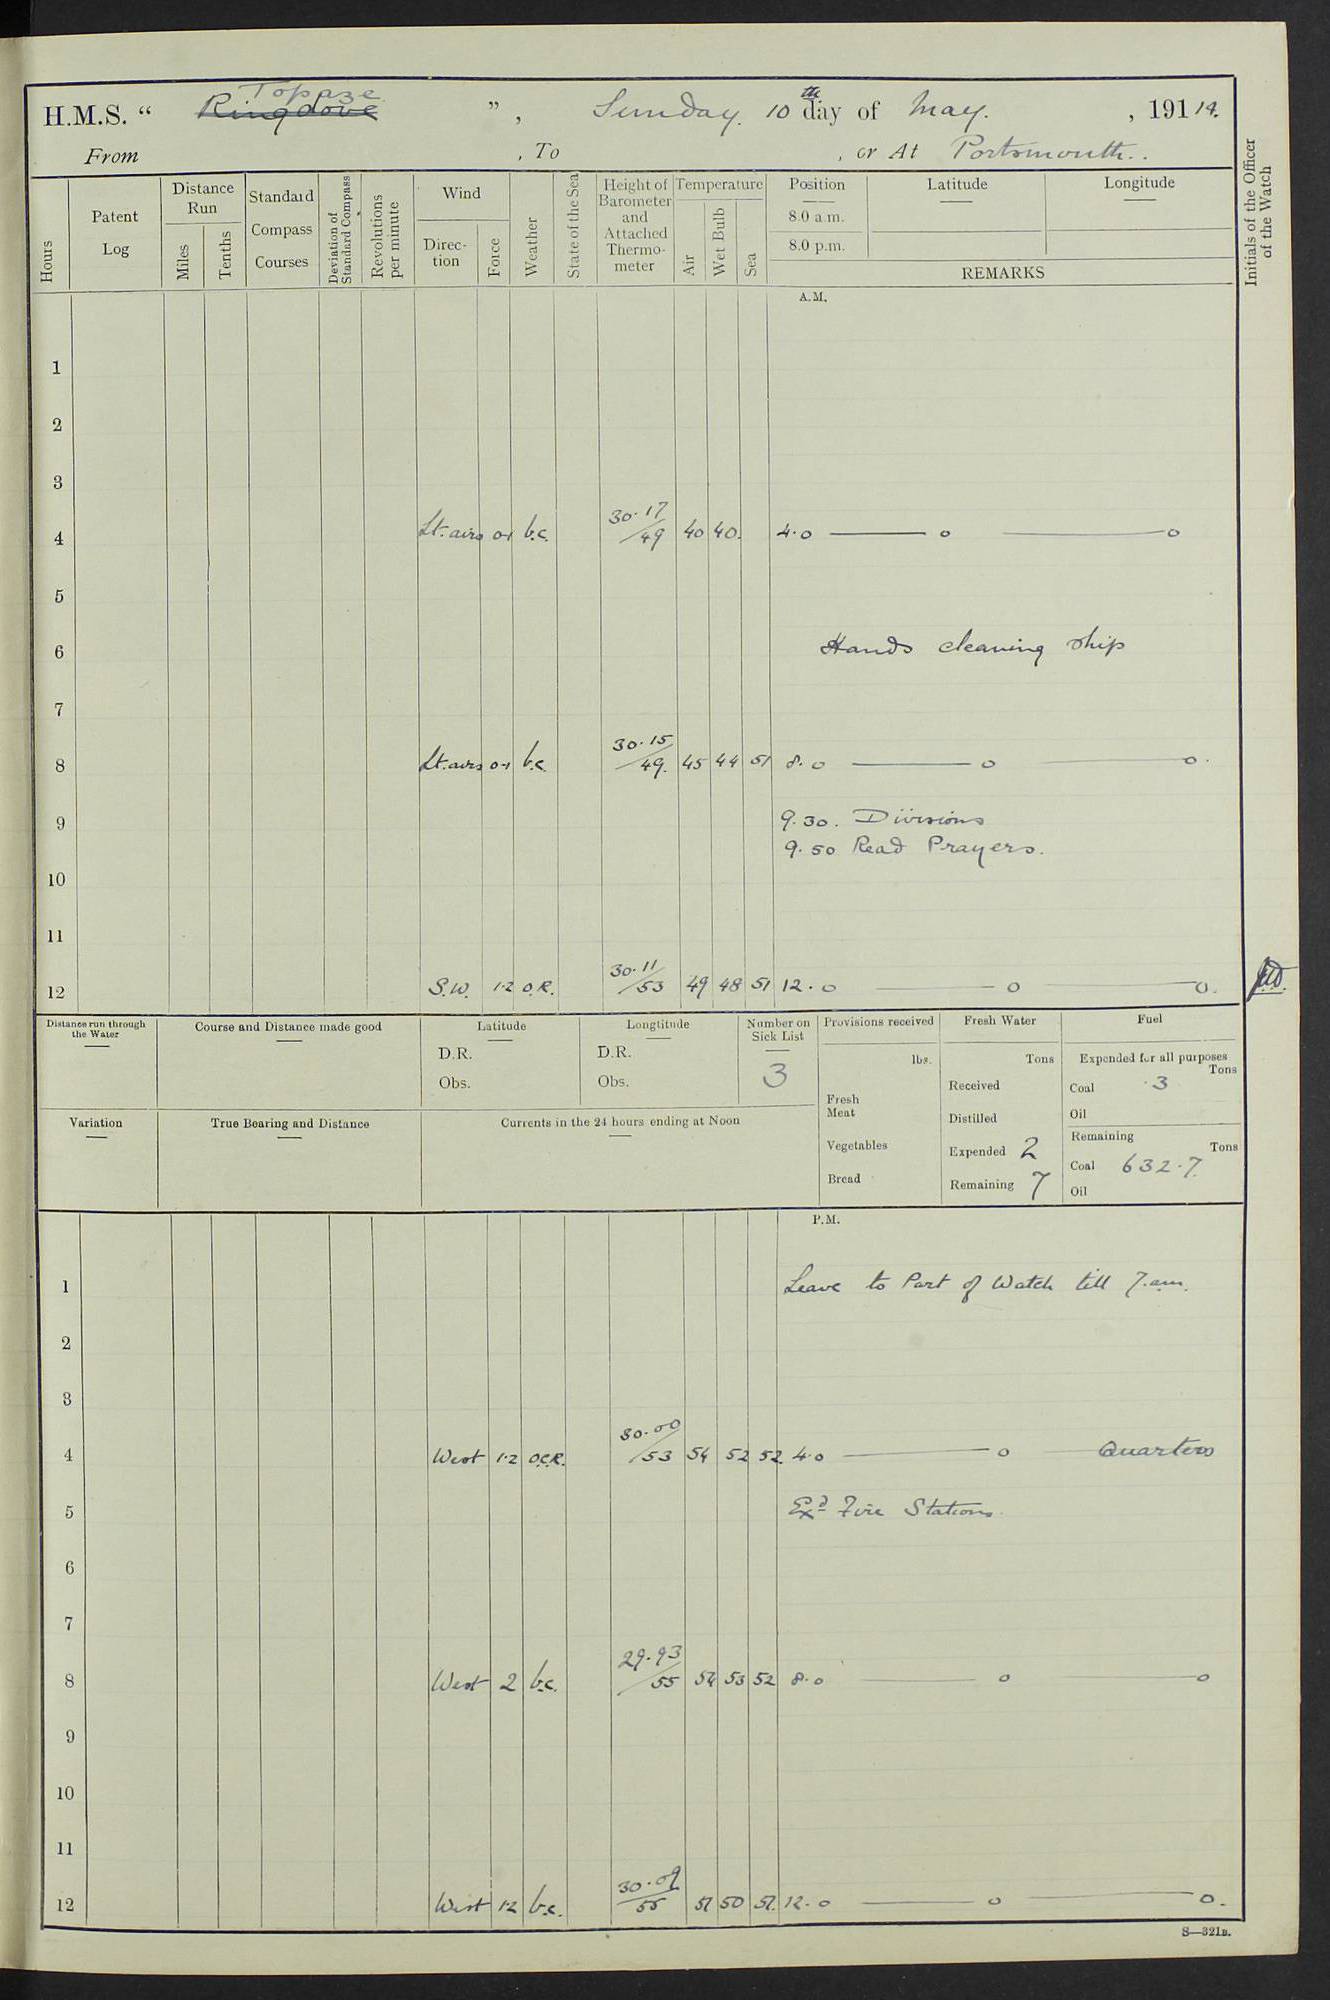 Topaze
H.M.S. “ Ringdove ” , Sunday. 10th day of May. , 19114.
From , To , or At Portsmouth..
Hours
Patent Log
Distance Run
Miles
Tenths
Standard Compass Courses
Deviation of Standard Compass
Revolutions per minute
Wind
Direc-tion
Force
Weather
State of the Sea
Height of Barometer and Attached Thermo-meter
Temperature
Air
Wet Bulb
Sea
Position
8.0 a.m.
8.0 p.m.
Latitude
Longitude
REMARKS
Initials of the Officer of the Watch
A.M.
1
2
3
4 Lt. airs 0-1 b.c. 30.17/49 40 40. 4.0 — o — o
5
6 Hands cleaning ship
7
8 Lt. airs 0-1 b.c. 30.15/49. 45 44 51 8.0 — o — o.
9 9.30. Divisions
9.50 Read Prayers.
10
11
12 S.W. 1.2 O.R. 30.11/53 49 48 51 12.0 — o — o.
Distance run through the Water
Course and Distance made good
Latitude
D.R.
Obs.
Longtitude
D.R.
Obs.
Number on Sick List
3
Provisions received
lbs.
Fresh Meat
Vegetables
Bread
Fresh Water
Tons
Received
Distilled
Expended 2
Remaining 7
Fuel
Expended for all purposes
Tons
Coal 3
Oil
Remaining
Tons
Coal 632.7
Oil
Variation
True Bearing and Distance
Currents in the 24 hours ending at Noon
P.M.
1 Leave to Part of Watch till 7.am.
2
3
4 West 1.2 O.C.R. 30.00/53 54 52 52 4.0 — o — Quarters
5 Exd Fire Stations.
6
7
8 West 2 b.c. 29.93/55 54 53 52 8.0 — o — o
9
10
11
12 West 1.2 b.c. 30.09/55 51 50 51. 12.0 — o — o.
S—321B.